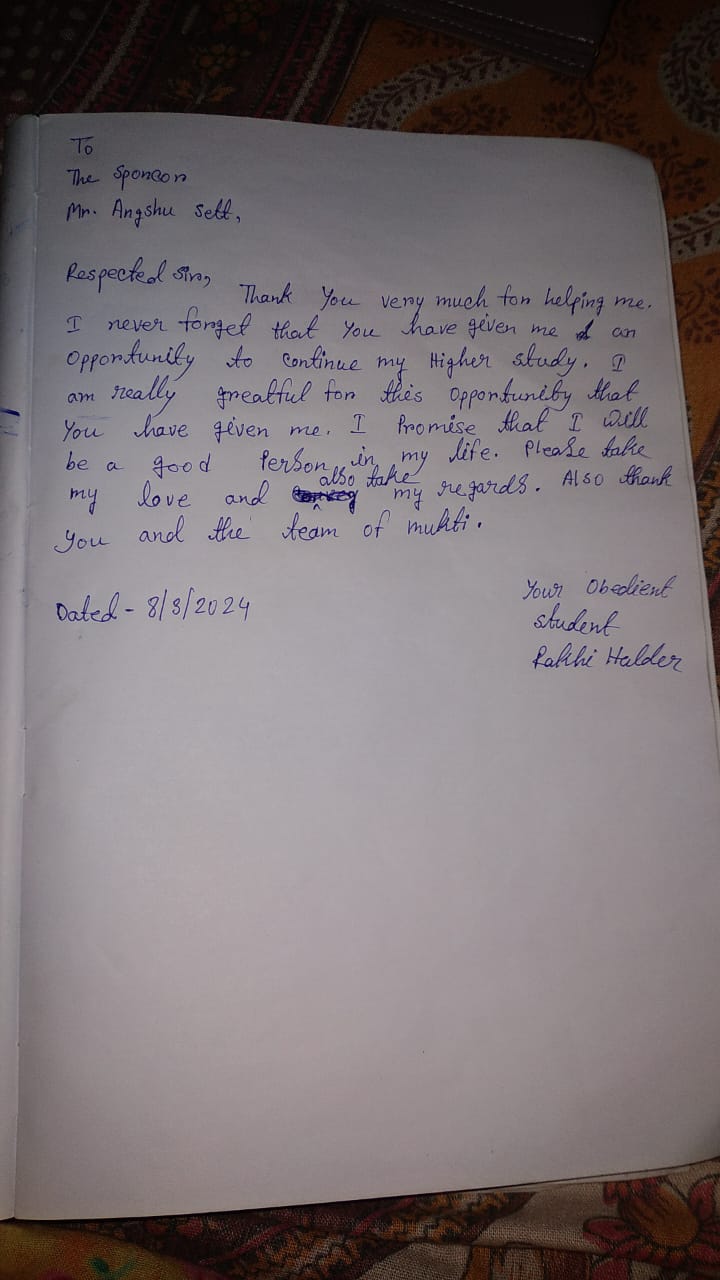 To
The Sponcor
Mr. Angshu Sett,
Respected Sir,
Thank You very much for helping me.
I never forget that You have given me an
Opportunity to continue my Higher study. I
am really greatful for this Opportunity that
You have given me. I Promise that I will
be a good Person in my life. Please take
my love and also take my regards. Also thank
you and the team of mukti.
Dated - 8/3/2024
Your Obedient
student
Rakhi Halder